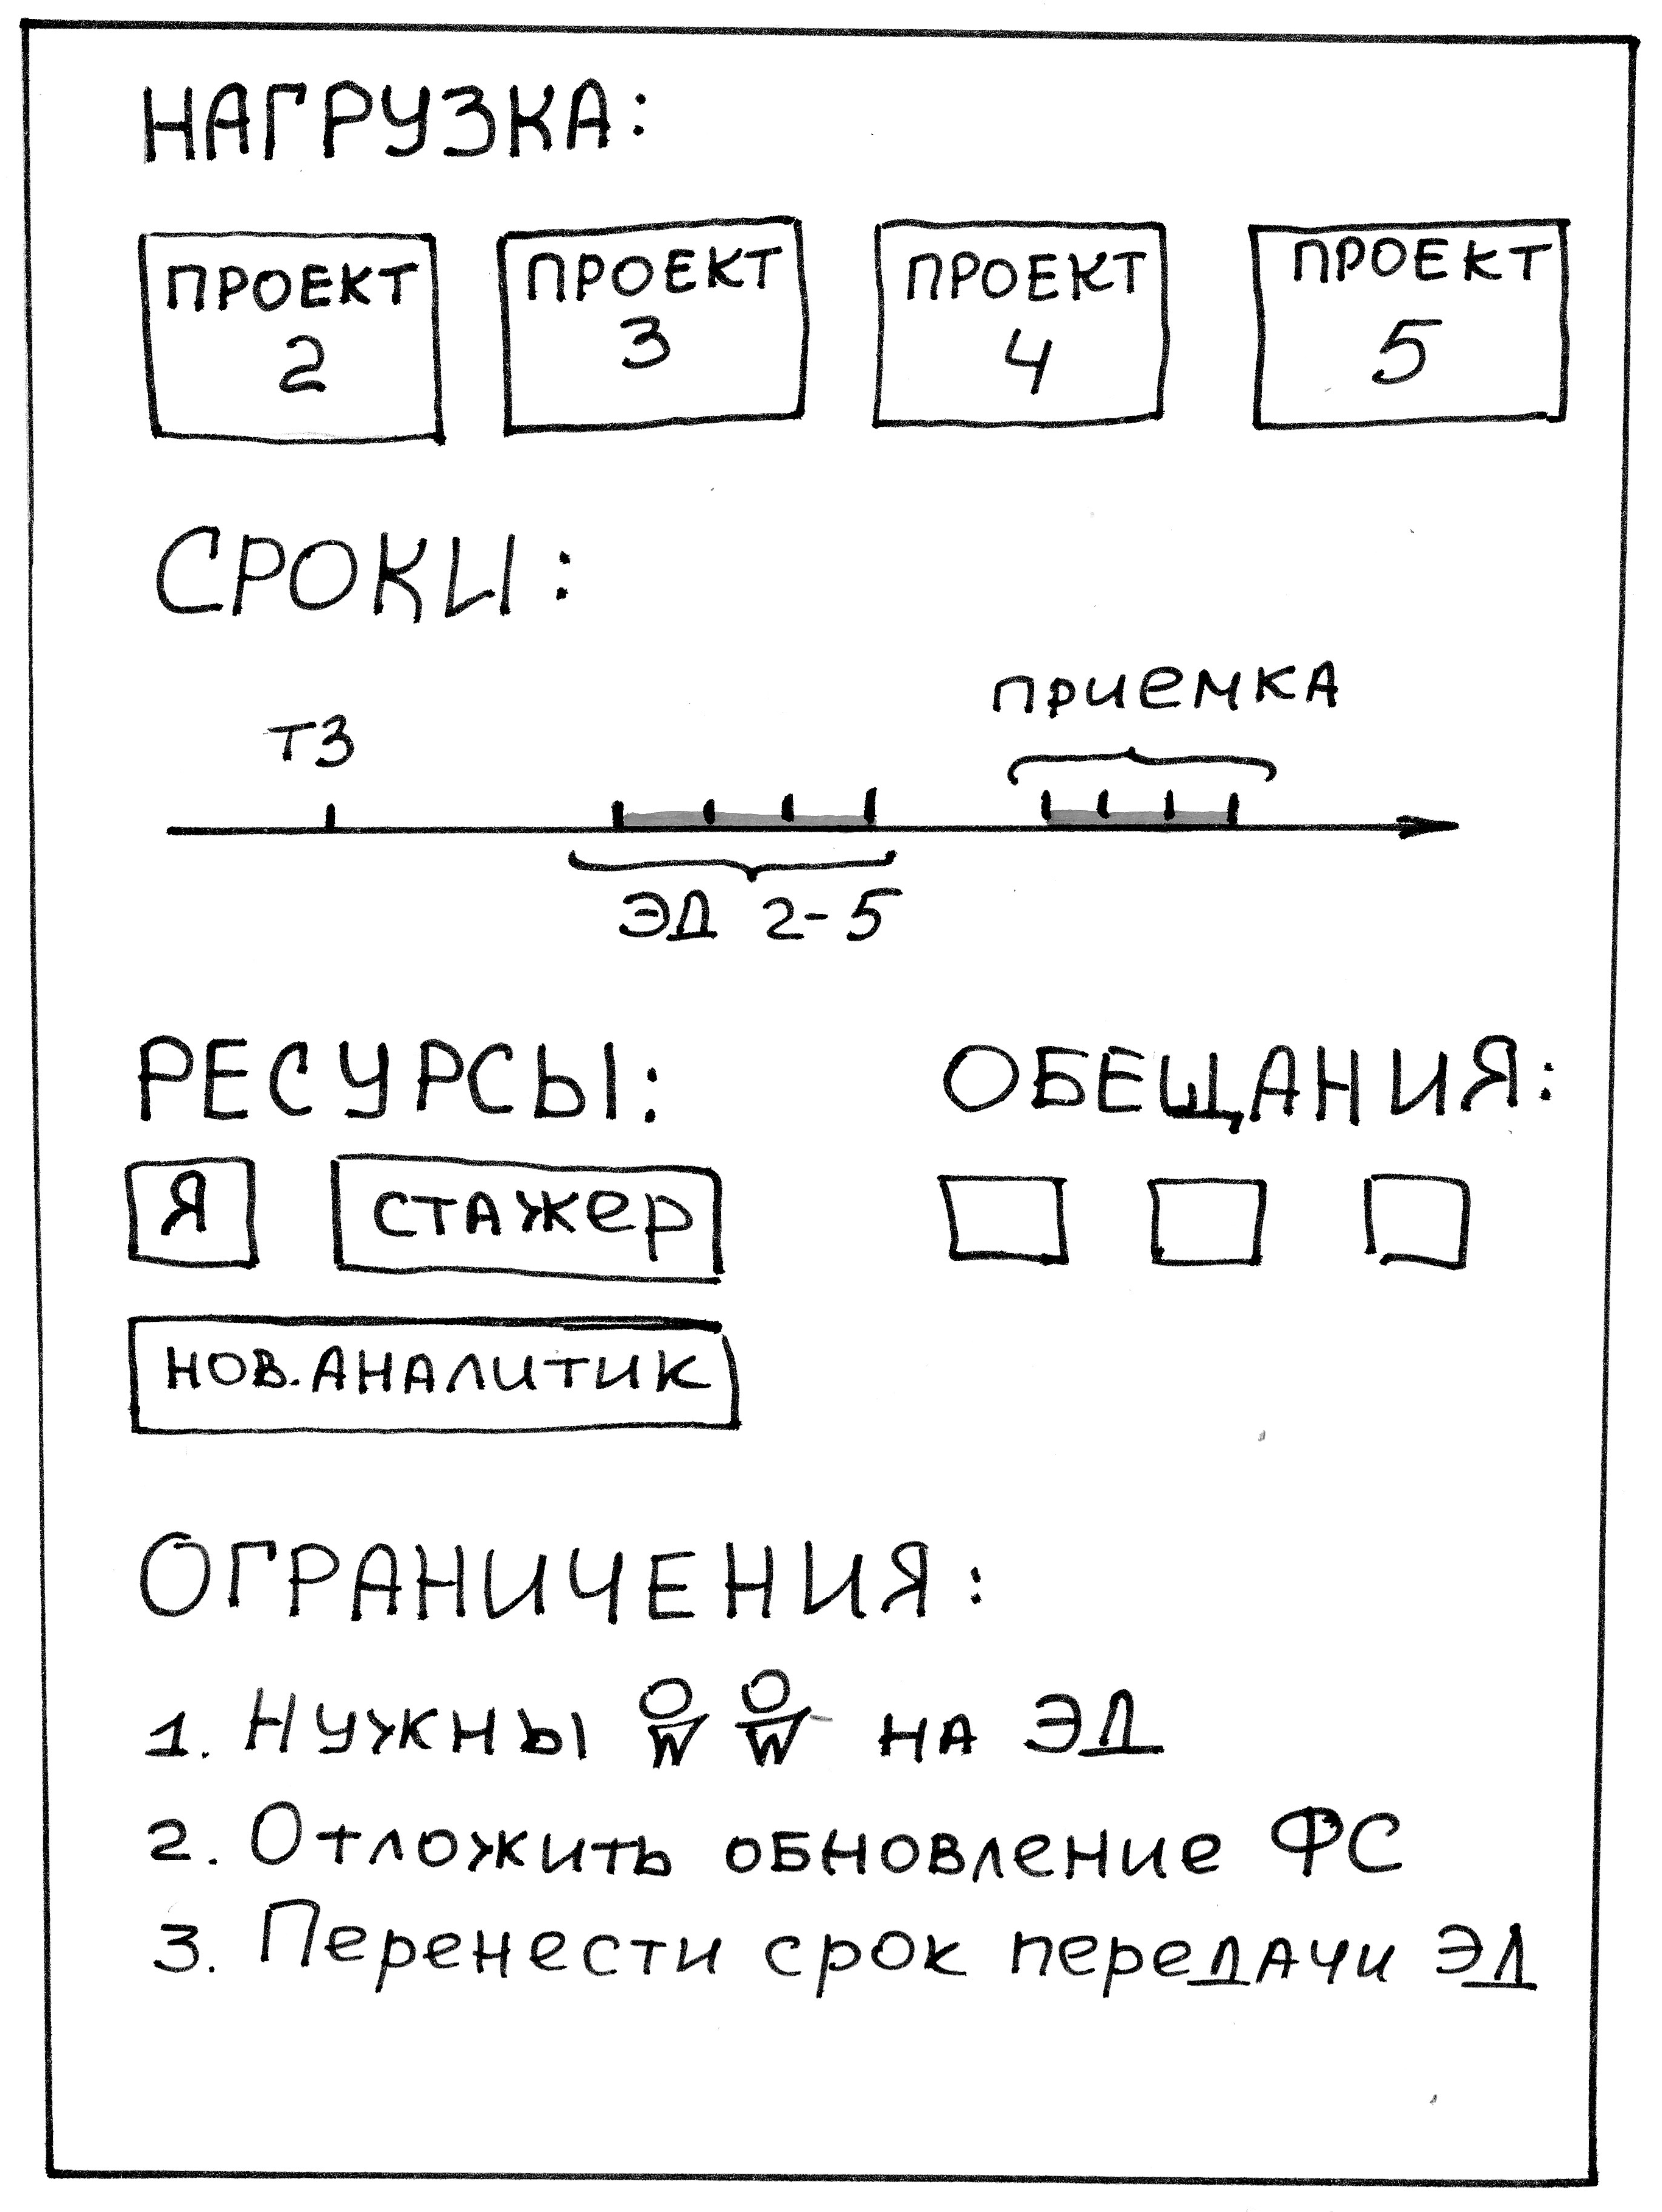 НАГРУЗКА:
ПРОЕКТ 2
ПРОЕКТ 3
ПРОЕКТ 4
ПРОЕКТ 5
СРОКИ:
ПРИЕМКА
ТЗ
ЭД 2-5
РЕСУРСЫ:
Я
СТАЖЕР
НОВ. АНАЛИТИК
ОБЕЩАНИЯ:
ОГРАНИЧЕНИЯ:
1. Нужны на ЭД
2. Отложить обновление ФС
3. Перенести срок передачи ЭД